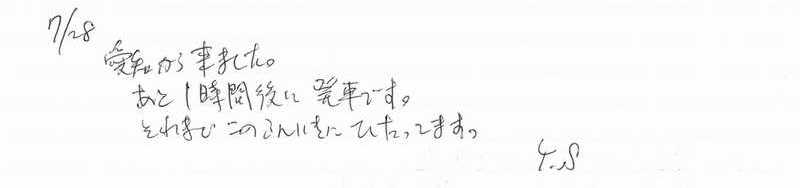 7/28
愛知から来ました。
あと1時間後に発車です。
それまでこのふんいきにひたってますっ
Y.S